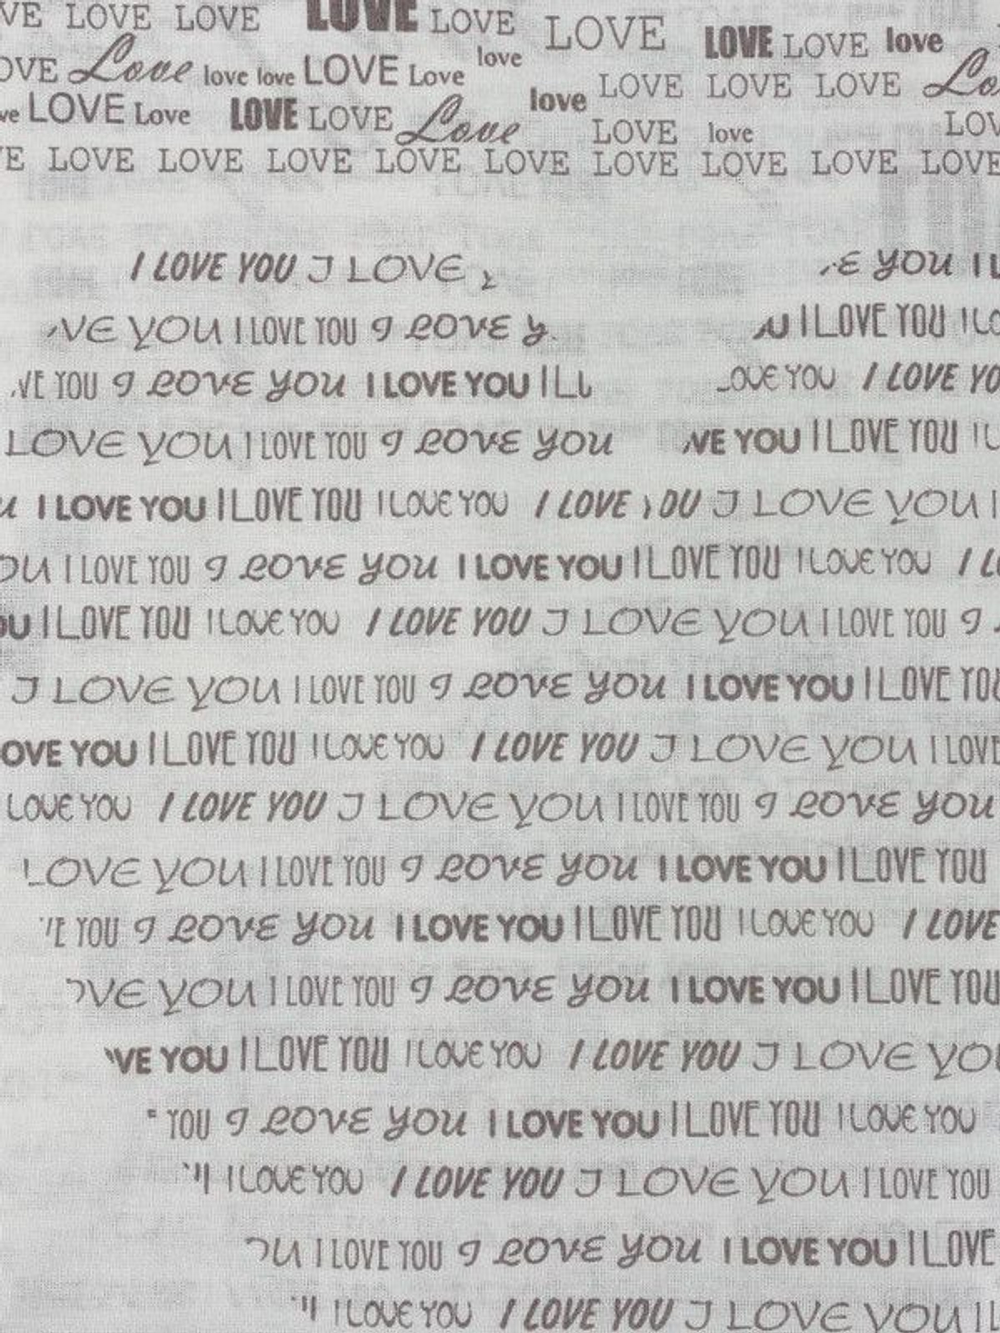 VE LOVE LOVE LOVE LOVE LOVE LOVE LOVE love
OVE Love love love LOVE Love love LOVE LOVE LOVE Lo
ve LOVE Love LOVE LOVE Love love LOVE love LOV
E LOVE LOVE LOVE LOVE LOVE LOVE LOVE LOVE LOVE
I LOVE YOU I LOVE E YOU I L
VE YOU I LOVE YOU I LOVE y U I LOVE YOU I LO
VE YOU I LOVE you I LOVE YOU I L OVE YOU I LOVE YO
LOVE YOU I LOVE YOU I LOVE you VE YOU I LOVE YOU I L
u I LOVE YOU I LOVE YOU I LOVE YOU I LOVE YOU I LOVE YOU I
OU I LOVE YOU I LOVE you I LOVE YOU I LOVE YOU I LOVE YOU I L
OU I LOVE YOU I LOVE YOU I LOVE YOU I LOVE YOU I LOVE YOU I
I LOVE YOU I LOVE YOU I LOVE you I LOVE YOU I LOVE YOU
OVE YOU I LOVE YOU I LOVE YOU I LOVE YOU I LOVE YOU I LOVE
LOVE YOU I LOVE YOU I LOVE YOU I LOVE YOU I LOVE you
LOVE YOU I LOVE YOU I LOVE you I LOVE YOU I LOVE YOU
E YOU I LOVE you I LOVE YOU I LOVE YOU I LOVE YOU I LOVE
OVE YOU I LOVE YOU I LOVE you I LOVE YOU I LOVE YOU
VE YOU I LOVE YOU I LOVE YOU I LOVE YOU I LOVE YOU
YOU I LOVE you I LOVE YOU I LOVE YOU I LOVE YOU
I LOVE YOU I LOVE YOU I LOVE YOU I LOVE YOU
OU I LOVE YOU I LOVE you I LOVE YOU I LOVE
I LOVE YOU I LOVE YOU I LOVE YOU I L